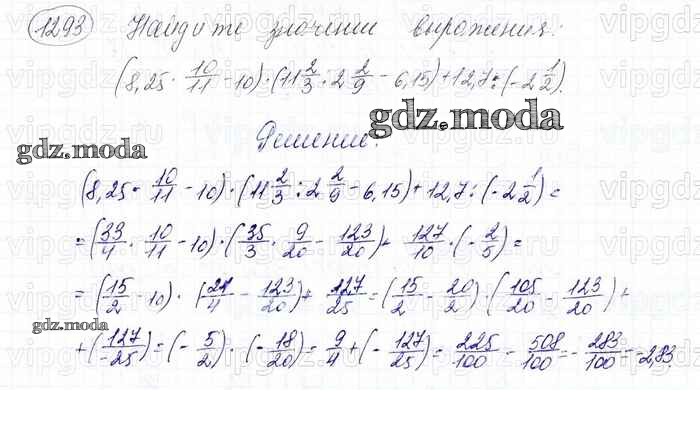 1293 Найдите значение выражения:
(8,25 · 10/11 - 10) · (11 2/3 : 2 2/9 - 6,15) + 12,7 : (-2 1/2).
gdz.moda
Решение:
gdz.moda
(8,25 · 10/11 - 10) · (11 2/3 : 2 2/9 - 6,15) + 12,7 : (-2 1/2) =
= (33/4 · 10/11 - 10) · (35/3 · 9/20 - 123/20) + 127/10 · (-2/5) =
= (15/2 - 10) · (21/4 - 123/20) + 127/25 = (15/2 - 20/2) · (105/20 - 123/20) +
gdz.moda
+ (127/-25) = (-5/2) · (-18/20) = 9/4 + (-127/25) = 225/100 - 508/100 = -283/100 = -2,83.